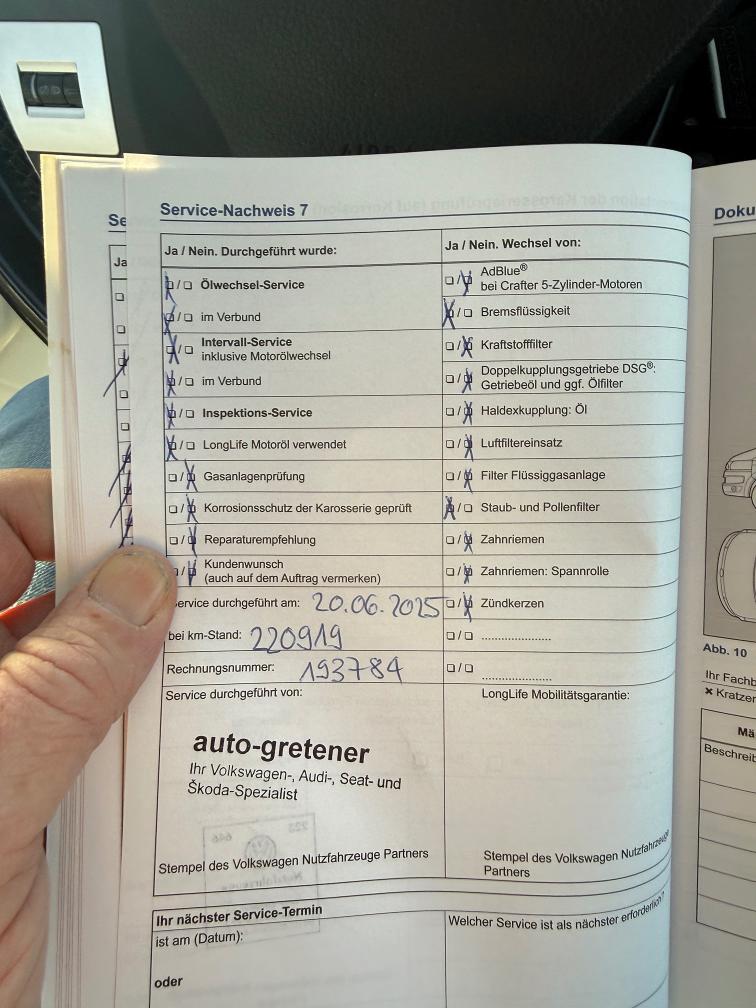 Service-Nachweis 7
Ja / Nein. Durchgeführt wurde:
Ölwechsel-Service
im Verbund
Intervall-Service
inklusive Motorölwechsel
im Verbund
Inspektions-Service
LongLife Motoröl verwendet
Gasanlagenprüfung
Korrosionsschutz der Karosserie geprüft
Reparaturempfehlung
Kundenwunsch
(auch auf dem Auftrag vermerken)
Service durchgeführt am: 20.06.2025
bei km-Stand: 220919
Rechnungsnummer: 193784
Service durchgeführt von:
auto-gretener
Ihr Volkswagen-, Audi-, Seat- und
Škoda-Spezialist
Stempel des Volkswagen Nutzfahrzeuge Partners
Ja / Nein. Wechsel von:
AdBlue®
bei Crafter 5-Zylinder-Motoren
Bremsflüssigkeit
Kraftstofffilter
Doppelkupplungsgetriebe DSG®:
Getriebeöl und ggf. Ölfilter
Haldexkupplung: Öl
Luftfiltereinsatz
Filter Flüssiggasanlage
Staub- und Pollenfilter
Zahnriemen
Zahnriemen: Spannrolle
Zündkerzen
LongLife Mobilitätsgarantie:
Stempel des Volkswagen Nutzfahrzeuge
Partners
Ihr nächster Service-Termin
ist am (Datum):
oder
Welcher Service ist als nächster erforderlich?
Se
Ja
Doku
Abb. 10
Ihr Fachb
× Kratzer
Mä
Beschreib